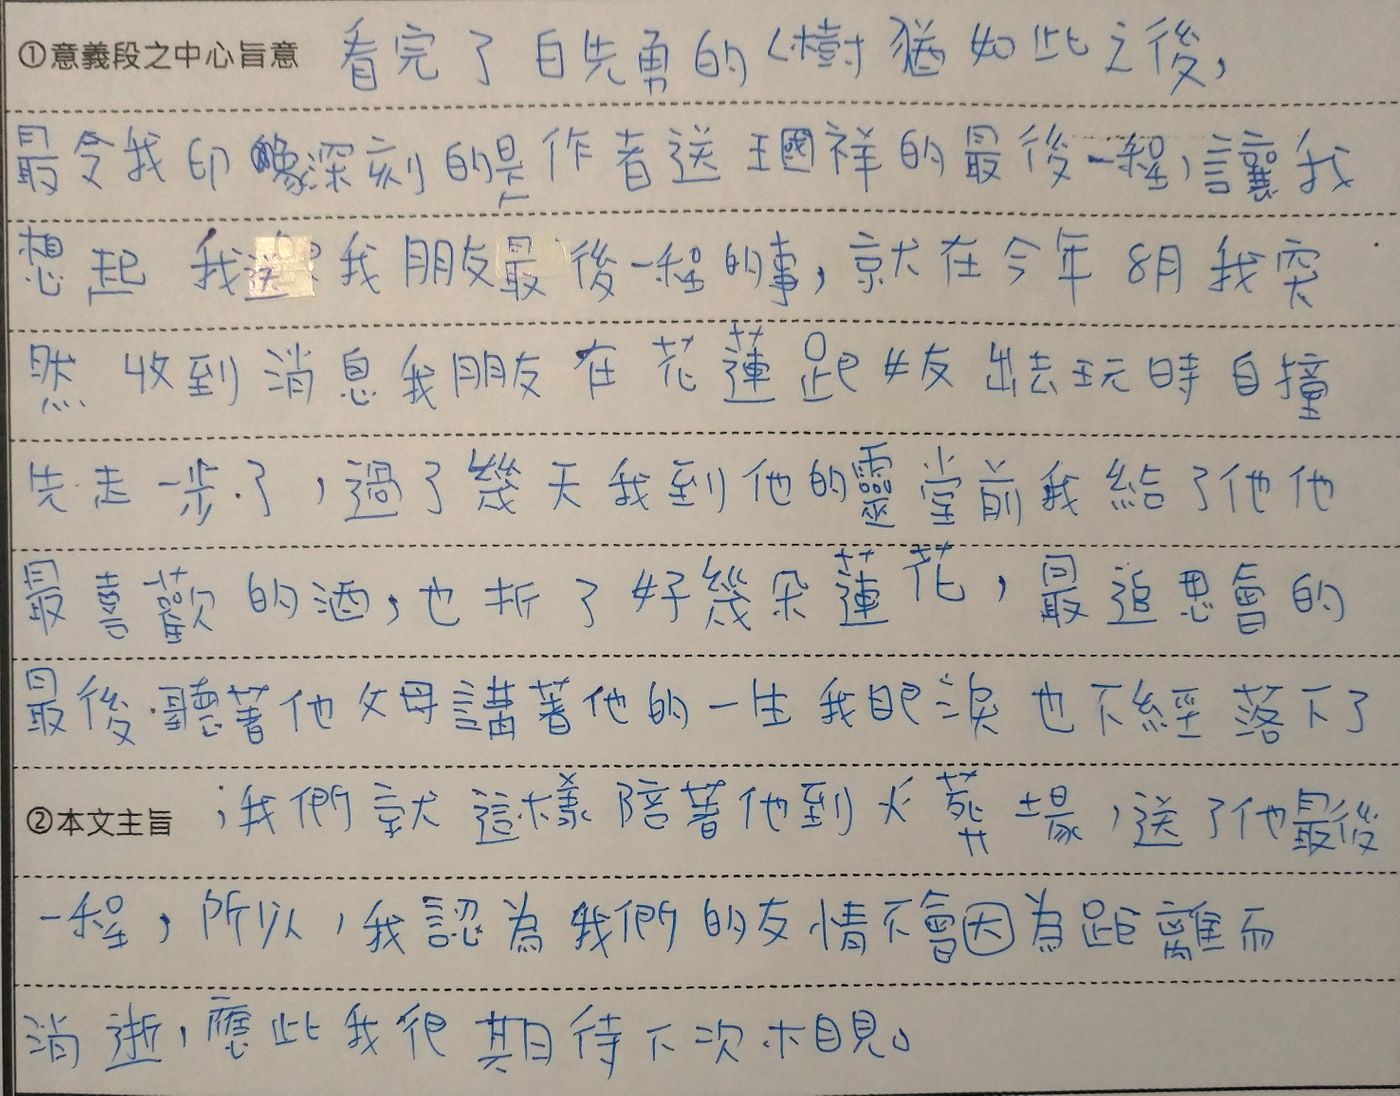 ①意義段之中心旨意 看完了白先勇的〈樹猶如此之後，
最令我印像深刻的是作者送王國祥的最後一程，讓我
想起 我送我朋友最後一程的事，就在今年8月我突
然 收到消息我朋友在花蓮跟女友出去玩時自撞
先走一步了，過了幾天我到他的靈堂前我給了他他
最喜歡的酒，也折了好幾朵蓮花，最追思會的
最後聽著他父母講著他的一生我眼淚也不經落下了
②本文主旨 ；我們就這樣陪著他到火葬場，送了他最後
一程，所以，我認為我們的友情不會因為距離而
消逝，應此我很期待下次相見。